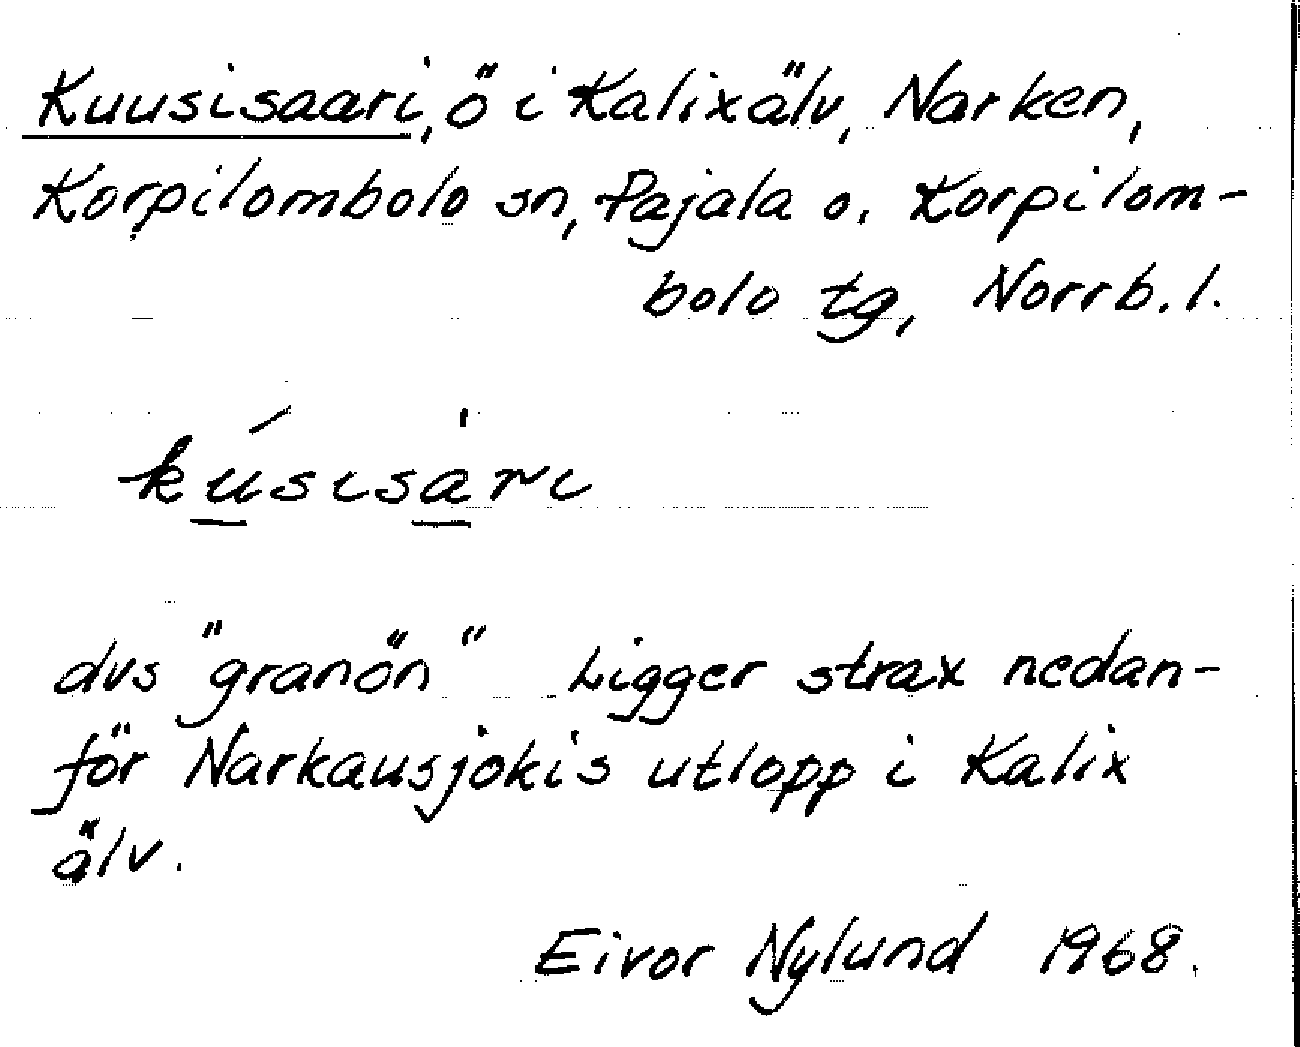 Kuusisaari, ö i Kalixälv, Narken,
Korpilombolo sn, Pajala o. Korpilom-
bolo tg, Norrb. l.
kúsisȧri
dvs "granön" Ligger strax nedan-
för Narkausjokis utlopp i Kalix
älv.
Eivor Nylund 1968.